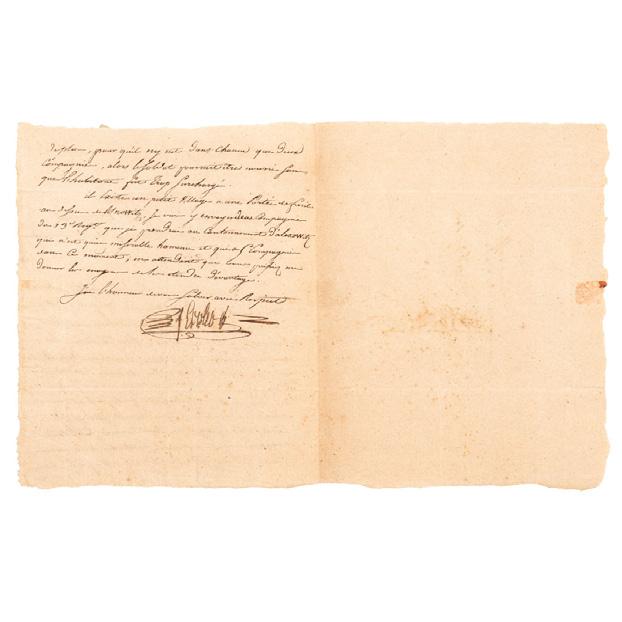 deplus, pour qu'il n'y eut dans chacun que deux
compagnie, alors le Soldat pourroit être nourri sans
que l'habitant fut trop surchargé
il existe un petit village a une portée de fusil
au dessus de j'y envoy deux Compagnie
du 13e Regt. que je prendrai au Cantonnement
qui n'est qu'un miserable hameau et qui a 5 Compagnie
dans ce moment, en attendant que vous puissiez me
donner les moyens de les étendre davantage.
J'ai l'honneur de vous saluer avec Respect